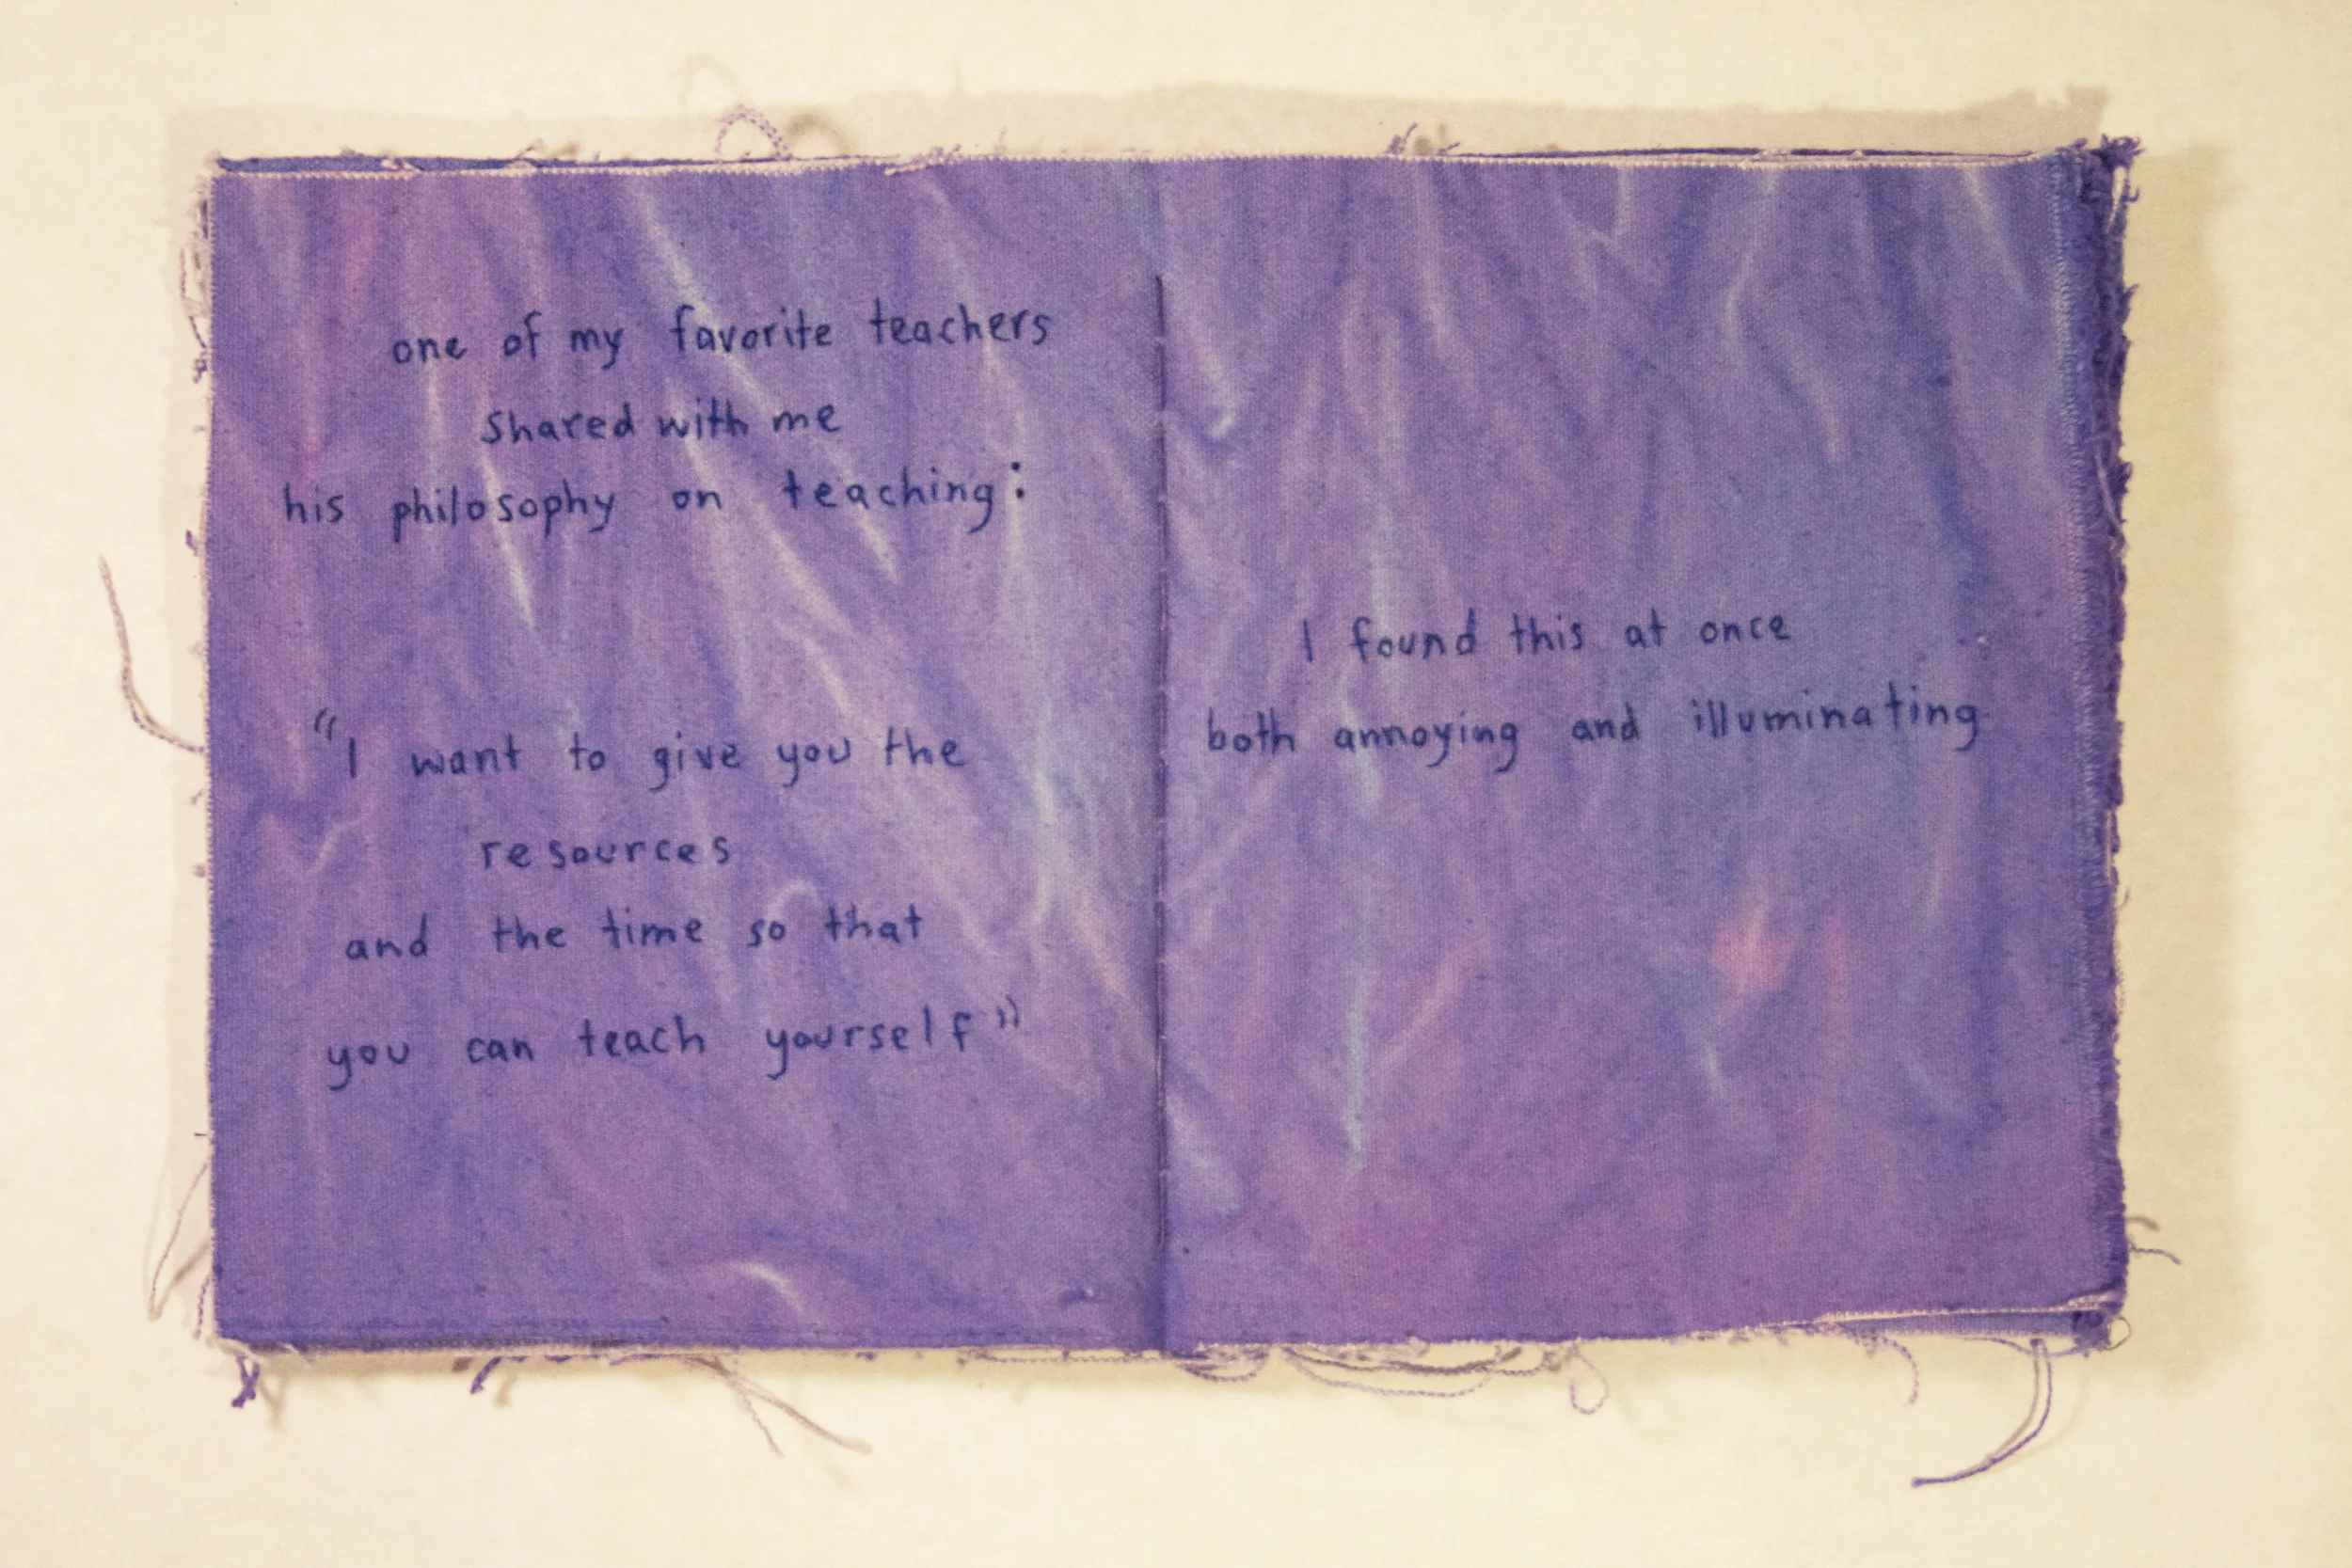 one of my favorite teachers
shared with me
his philosophy on teaching:
"I want to give you the
resources
and the time so that
you can teach yourself"
I found this at once
both annoying and illuminating